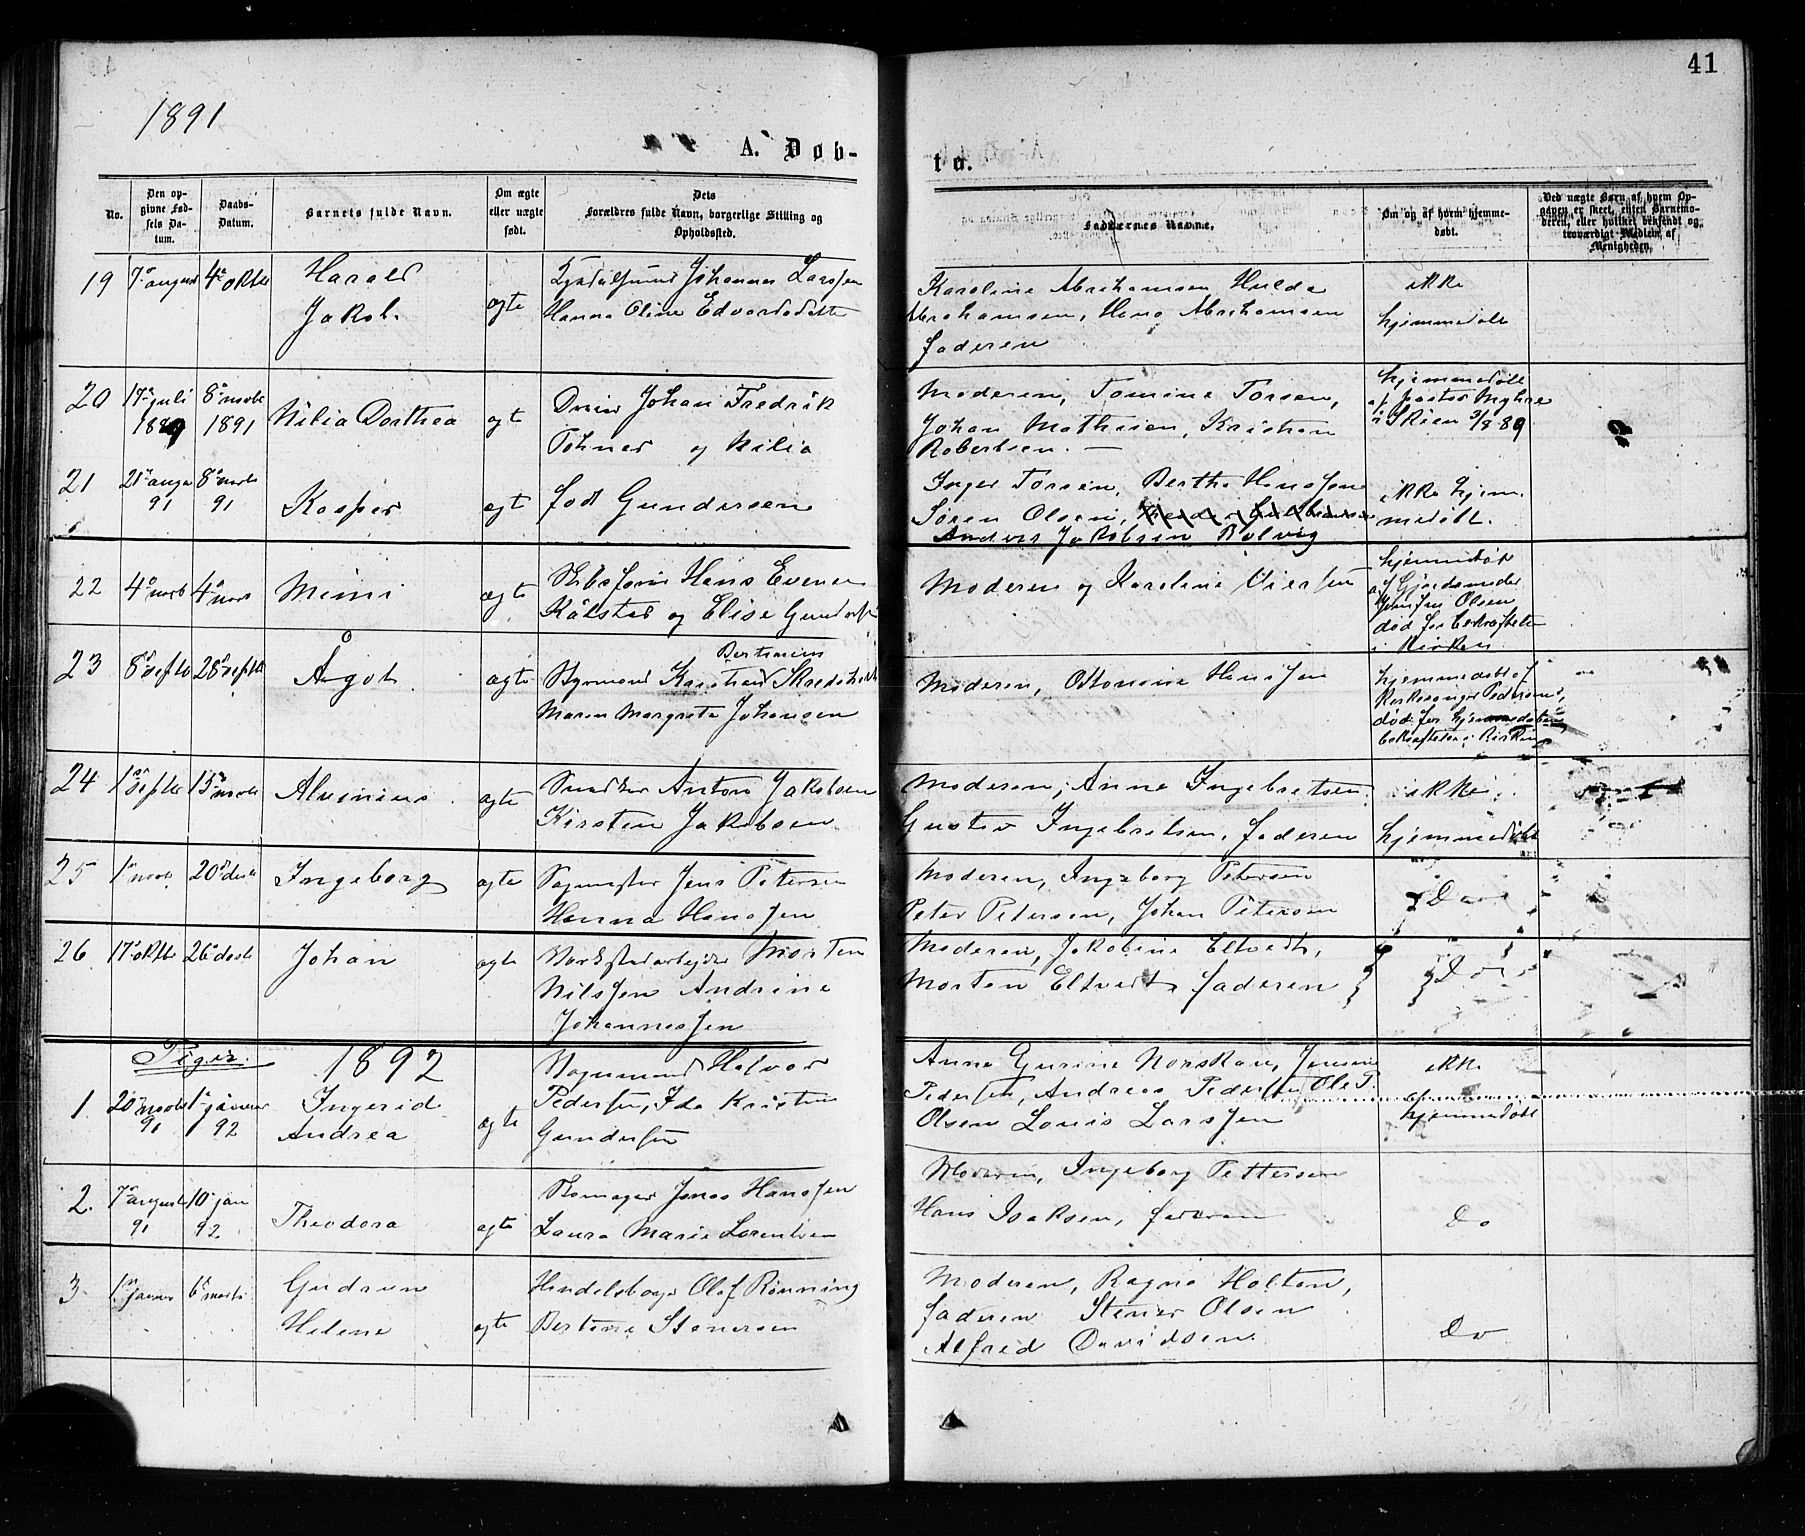 41
1891
A. Døb-
te.
No.
Den op-
givne Fød-
sels Da-
tum.
Daabs-
Datum.
Barnets fulde Navn.
Om ægte
eller uægte
født.
Dets
Forældres fulde Navn, borgerlige Stilling og
Opholdssted.
Faddernes Navne.
Om og af hvem hjemme-
døbt.
Ved uægte Børn af hvem Op-
gaven er skeet, enten Barnemo-
deren, eller hvilket bekjendt og
troværdigt Medlem af
Menigheden.
19 7de august 4de oktbr Harald
Jakob. ægte
Johannes Larssen
Hanna Oline Edvardsdatt
Karoline Abrahamsen Hulda
Abrahamsen, Hans Abrahamsen
faderen
ikke
hjemmedøbt
20 17de juli
1889 8de novb
1891 Nilia Dorthea ægt
Johan Fredrik
Tohner og Nilia
Moderen, Tomine Torsen,
Johan Mathisen, Kristian
Robertsen. —
hjemmedøbt
af pastor Myhre
i Skien 3/8 89
21 21de aug
91 8de novb
91 Kasper ægt
født Gundersen
Inger Torsen, Berthe Hanssen
Søren Olsen,
Anders Jakobsen Bolvig
ikke hjem
medøbt.
22 4de novb 4de novb Mimi ægte
Hans Evensen
Kålstad og Elise
Moderen og Karoline
hjemmedøbt
af Gjordemoder
Olsen
død før bekræftelse
i kirken
23 8de septb 28de septb Ågot ægte
Bertinius
Styrmand Kristian
Maren Margrete Johansen
Moderen, Ottomine Hanssen
hjemmedøbt af
Kirkesanger Pedersen,
død før hjemmedøben
bekræftedes i kirken
24 1ste septbr 15de novb Alvinius ægte
Anton Jakobsen
Kirsten Jakobsen
Moderen, Anne Ingebretsen
Gustav Ingebretsen, faderen
ikke
hjemmedøbt
25 1ste novb 20de desb Ingeborg ægte
Jens Petersen
Hanna Hanssen
Moderen, Ingeborg Petersen
Peter Petersen, Johan Petersen
Do
26 17de oktbr 26de desb Johan ægte
Verkstedarbejder Morten
Nilssen Andrine
Johannessen
Moderen, Jakobine Eltvedt,
Morten Eltvedt, faderen
Do
Piger. 1892
1. 20de novbr
91 1ste januar
92 Ingerid
Andrea ægte
Halvor
Pedersen, Ida Kristine
Gundersen
Anne Gurine Norskau, Jensine
Pedersen, Andreas Pedersen Ole P.
Olsen Louis Larssen
ikke
hjemmedøbt
2. 7de august
91 10de jan
92 Theodora ægte
Skomager Jonas Hanssen
Laura Marie Lorentsen
Moderen, Ingeborg Pettersen
Hans Isaksen, faderen
Do
3. 1ste januar 6te marts Gudrun
Helene ægte
Handelsborger Olaf Rønning
Bertine Stenersen
Moderen, Ragna Holtan,
faderen Stener Olsen
Alfred Davidsen
Do